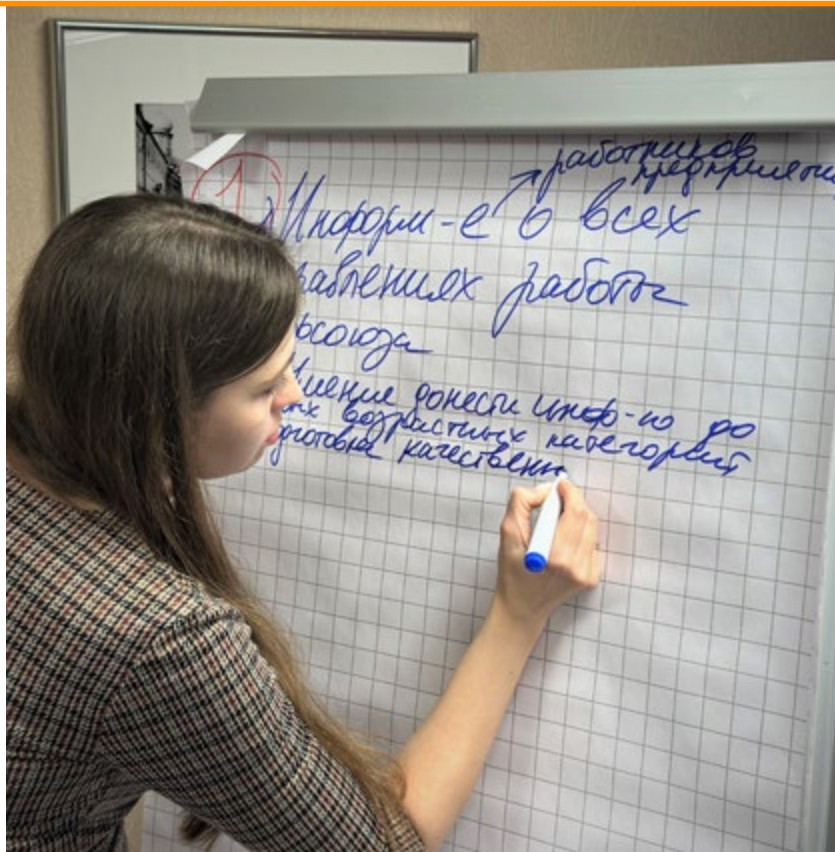 работников
предприятия
1) Информ-е о всех
равлениях работы
союза
мение донести инф-ю до
ых возрастных категорий
дготовка качественн